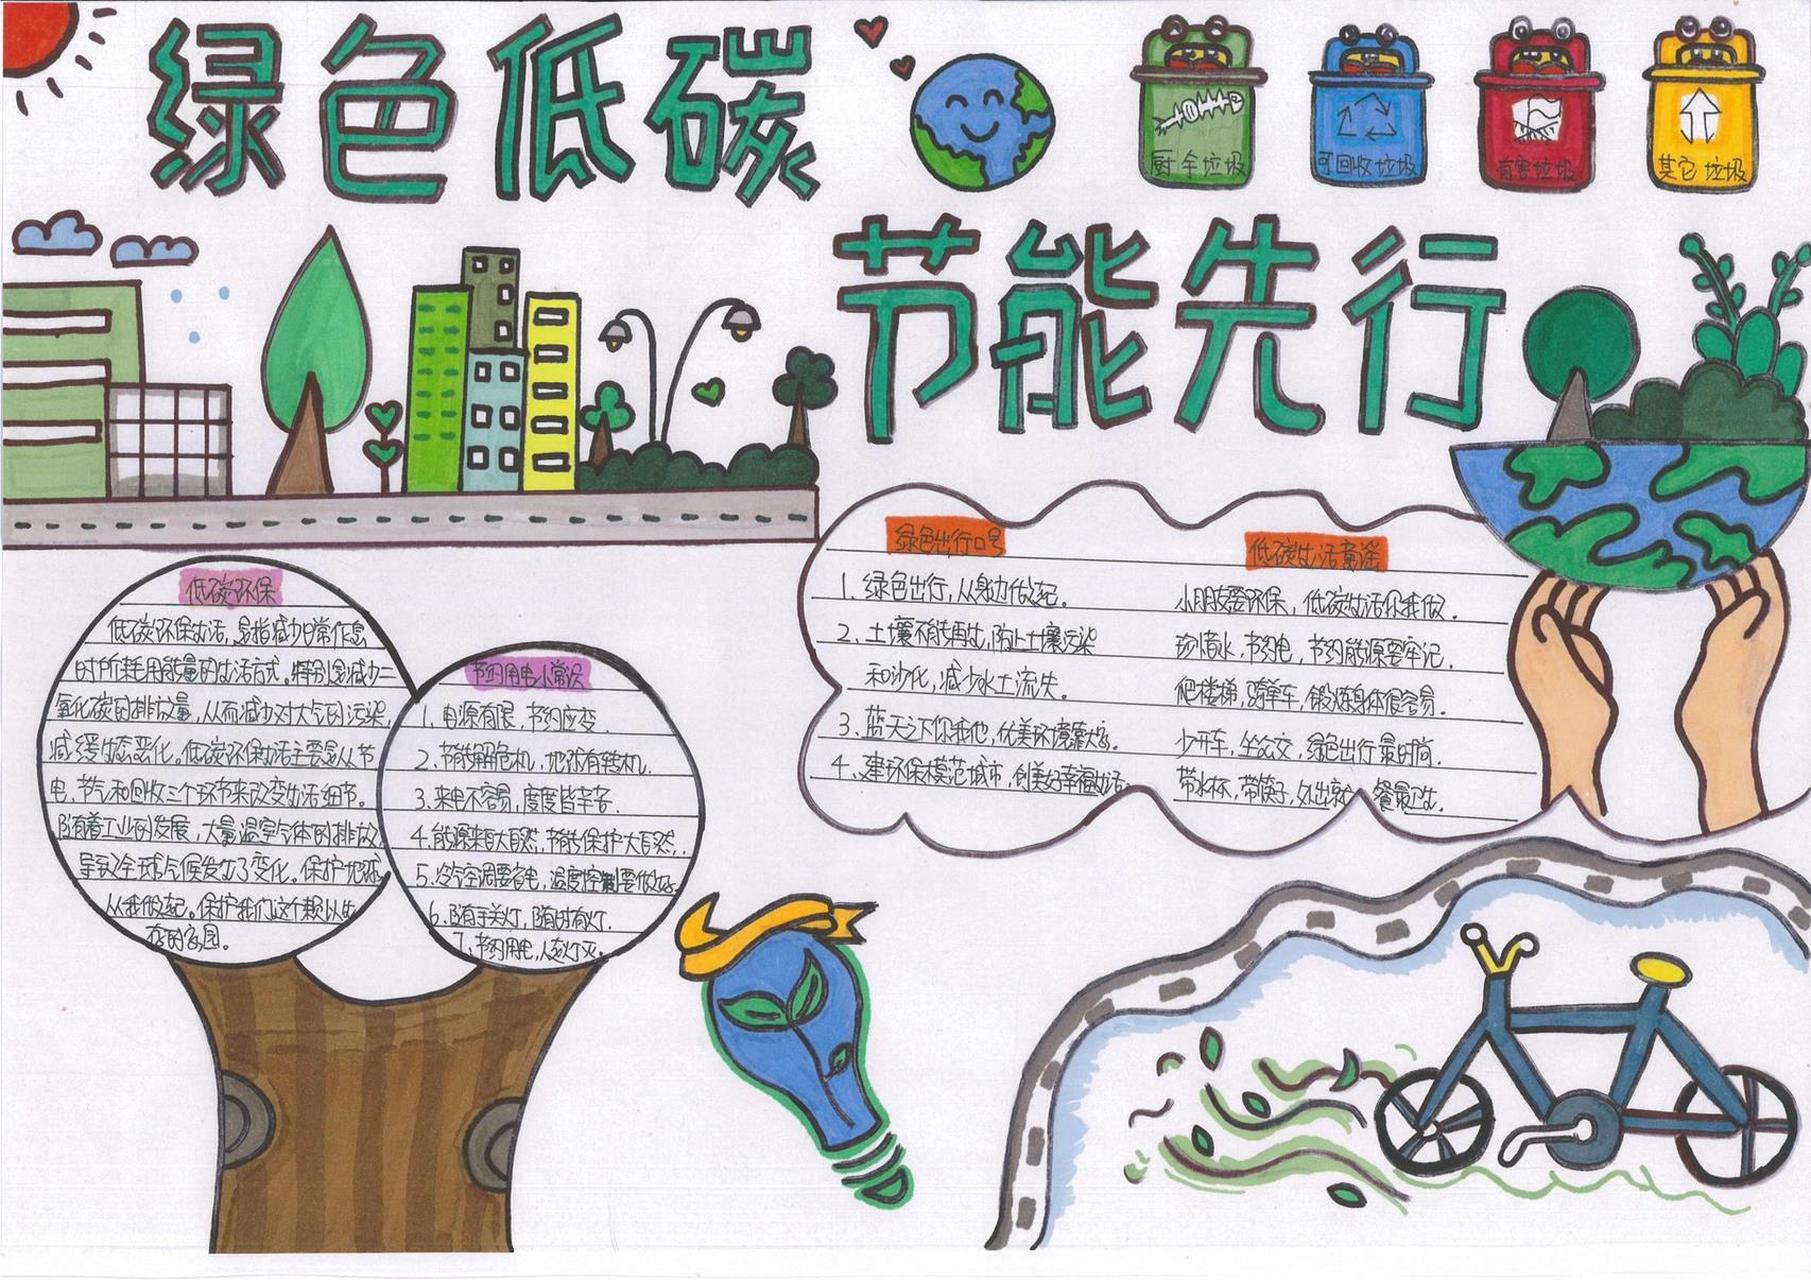 绿色低碳
厨余垃圾
可回收垃圾
有害垃圾
其它垃圾
节能先行
低碳环保
低碳环保生活，是指减少日常作息
时所耗用能量的生活方式。特别是减少二
氧化碳的排放量，从而减少对大气的污染，
减缓生态恶化。低碳环保生活主要是从节
电、节气和回收三个环节来改变生活细节。
随着工业的发展，大量温室气体的排放，
导致全球气候发生了变化。保护地球，
从我做起。保护我们这个赖以生
存的家园。
节约用电小常识
1、电源有限，节约应变.
2、节能解危机，地球有转机.
3.来电不容易，度度皆辛苦.
4.能源来自大自然，节能保护大自然.
5.冷气空调要省电，温度控制要做好.
6.随手关灯，随时有灯.
7.节约用电，人走灯灭.
绿色出行口号
1、绿色出行，从身边做起。
2、土壤不能再生，防止土壤污染
和沙化，减少水土流失。
3、蓝天之下你我他，优美环境靠大家。
4、建环保模范城市，创美好幸福生活。
低碳生活童谣
小朋友要环保，低碳生活你我做.
珍惜水，节约电，节约能源要牢记.
爬楼梯，骑单车，锻炼身体很容易.
少开车，坐公交，绿色出行最时尚.
带水杯，带筷子，外出就餐最卫生.